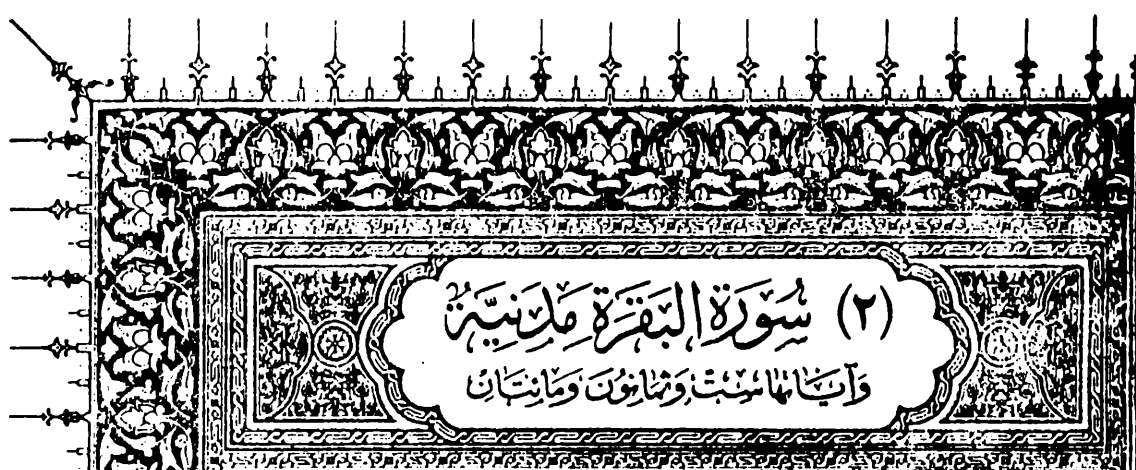 (٢) سُوْرَةُ الْبَقَرَةِ مَدَنِيَّةٌ
وَآيَاتُهَا سِتٌّ وَثَمَانُونَ وَمِائَتَانِ